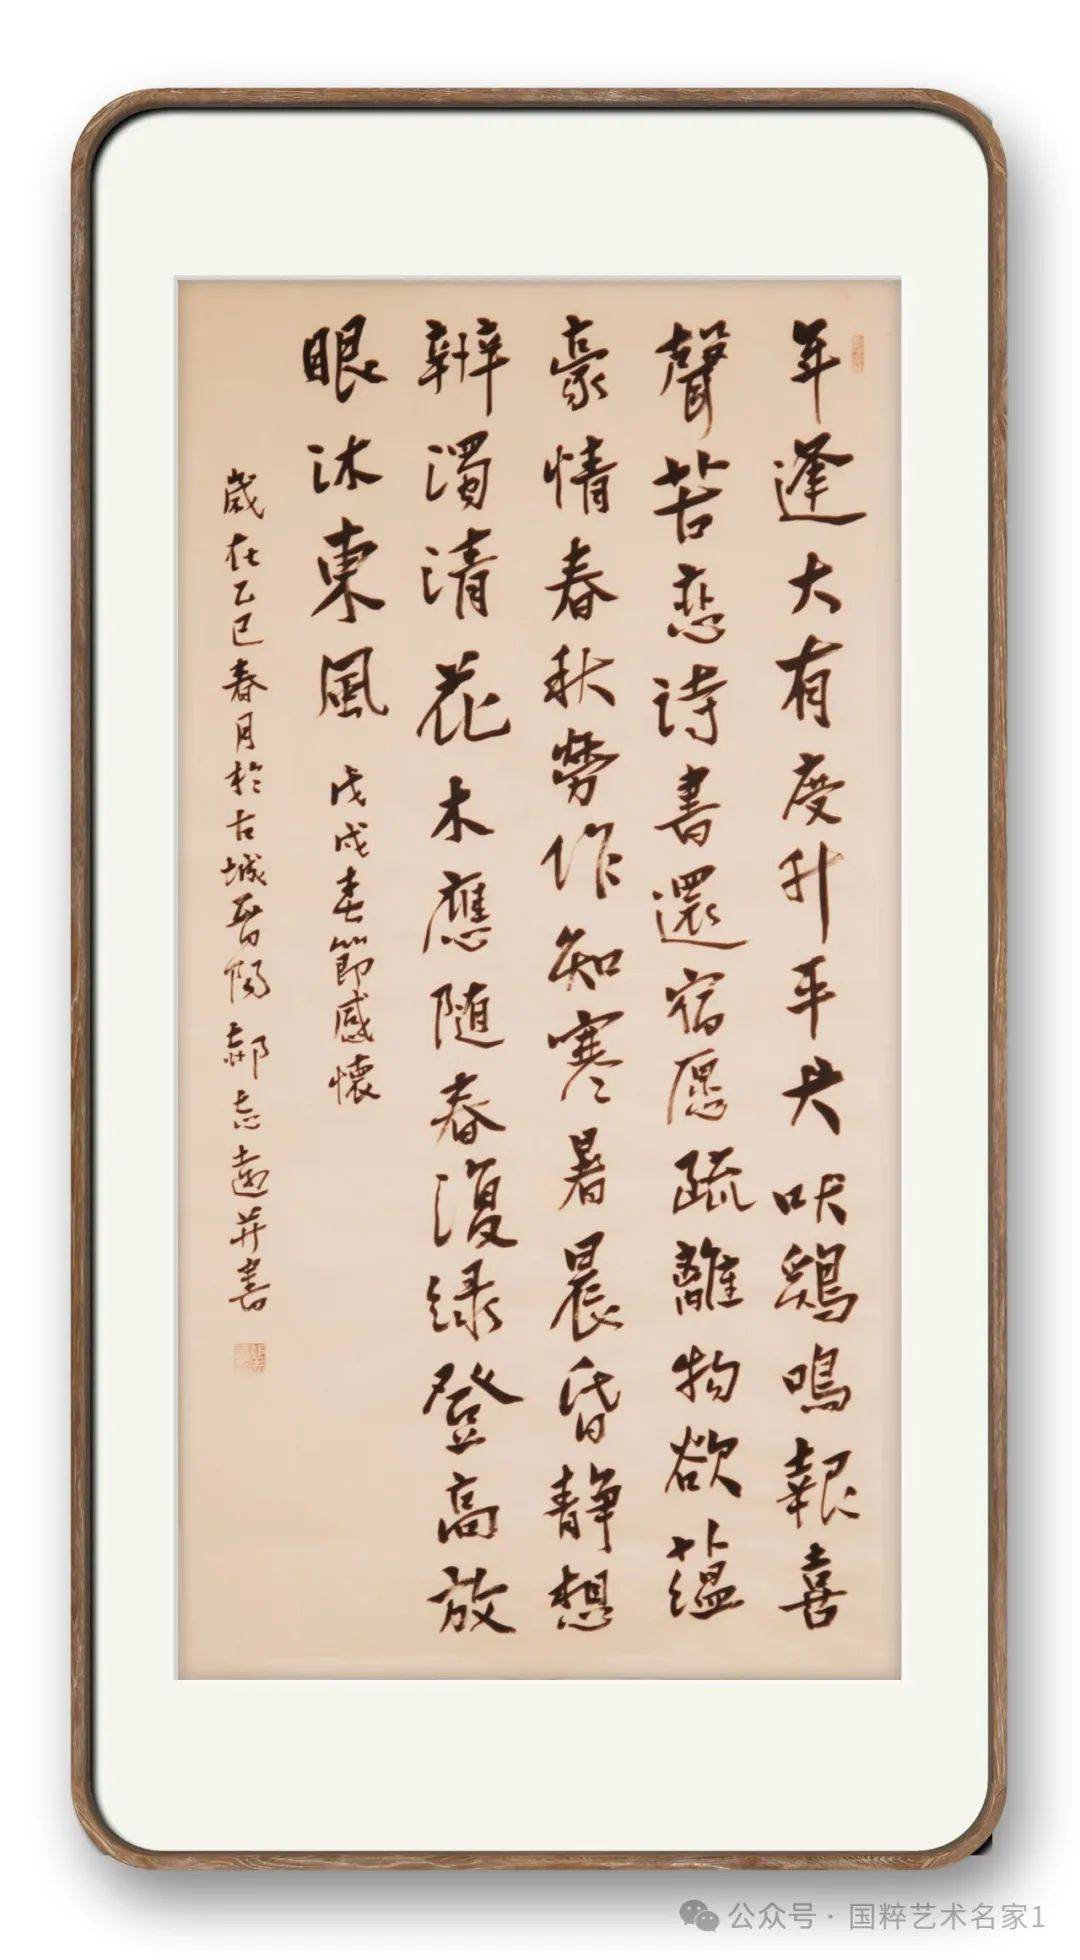 年逢大有度升平犬吠鷄鳴報喜
聲苦恋詩書還宿愿疏離物欲蕴
豪情春秋勞作知寒暑晨昏静想
辨濁清花木應随春復绿登高放
眼沐東風 戊戌春節感懷
歲在乙巳春月於古城晋陽郝志遠并書
公众号 · 国粹艺术名家1